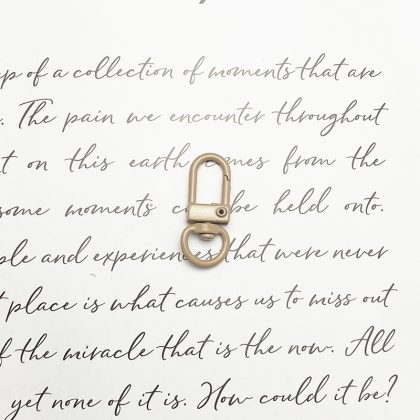 up of a collection of moments that are
. The pain we encounter throughout
t on this earth comes from the
some moments c be held onto.
ple and experiences that were never
t place is what causes us to miss out
f the miracle that is the now. All
yet none of it is. How could it be?